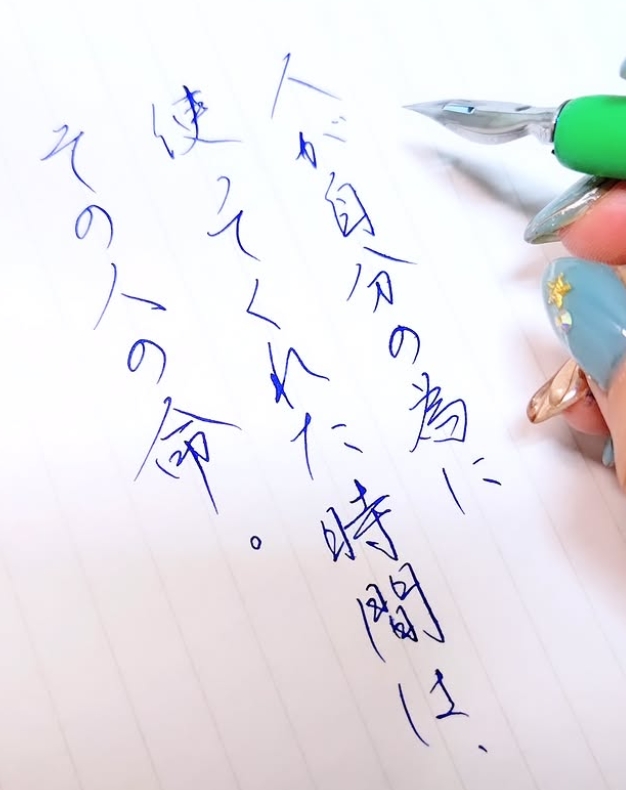 人が自分の為に
使ってくれた時間は、
その人の命。